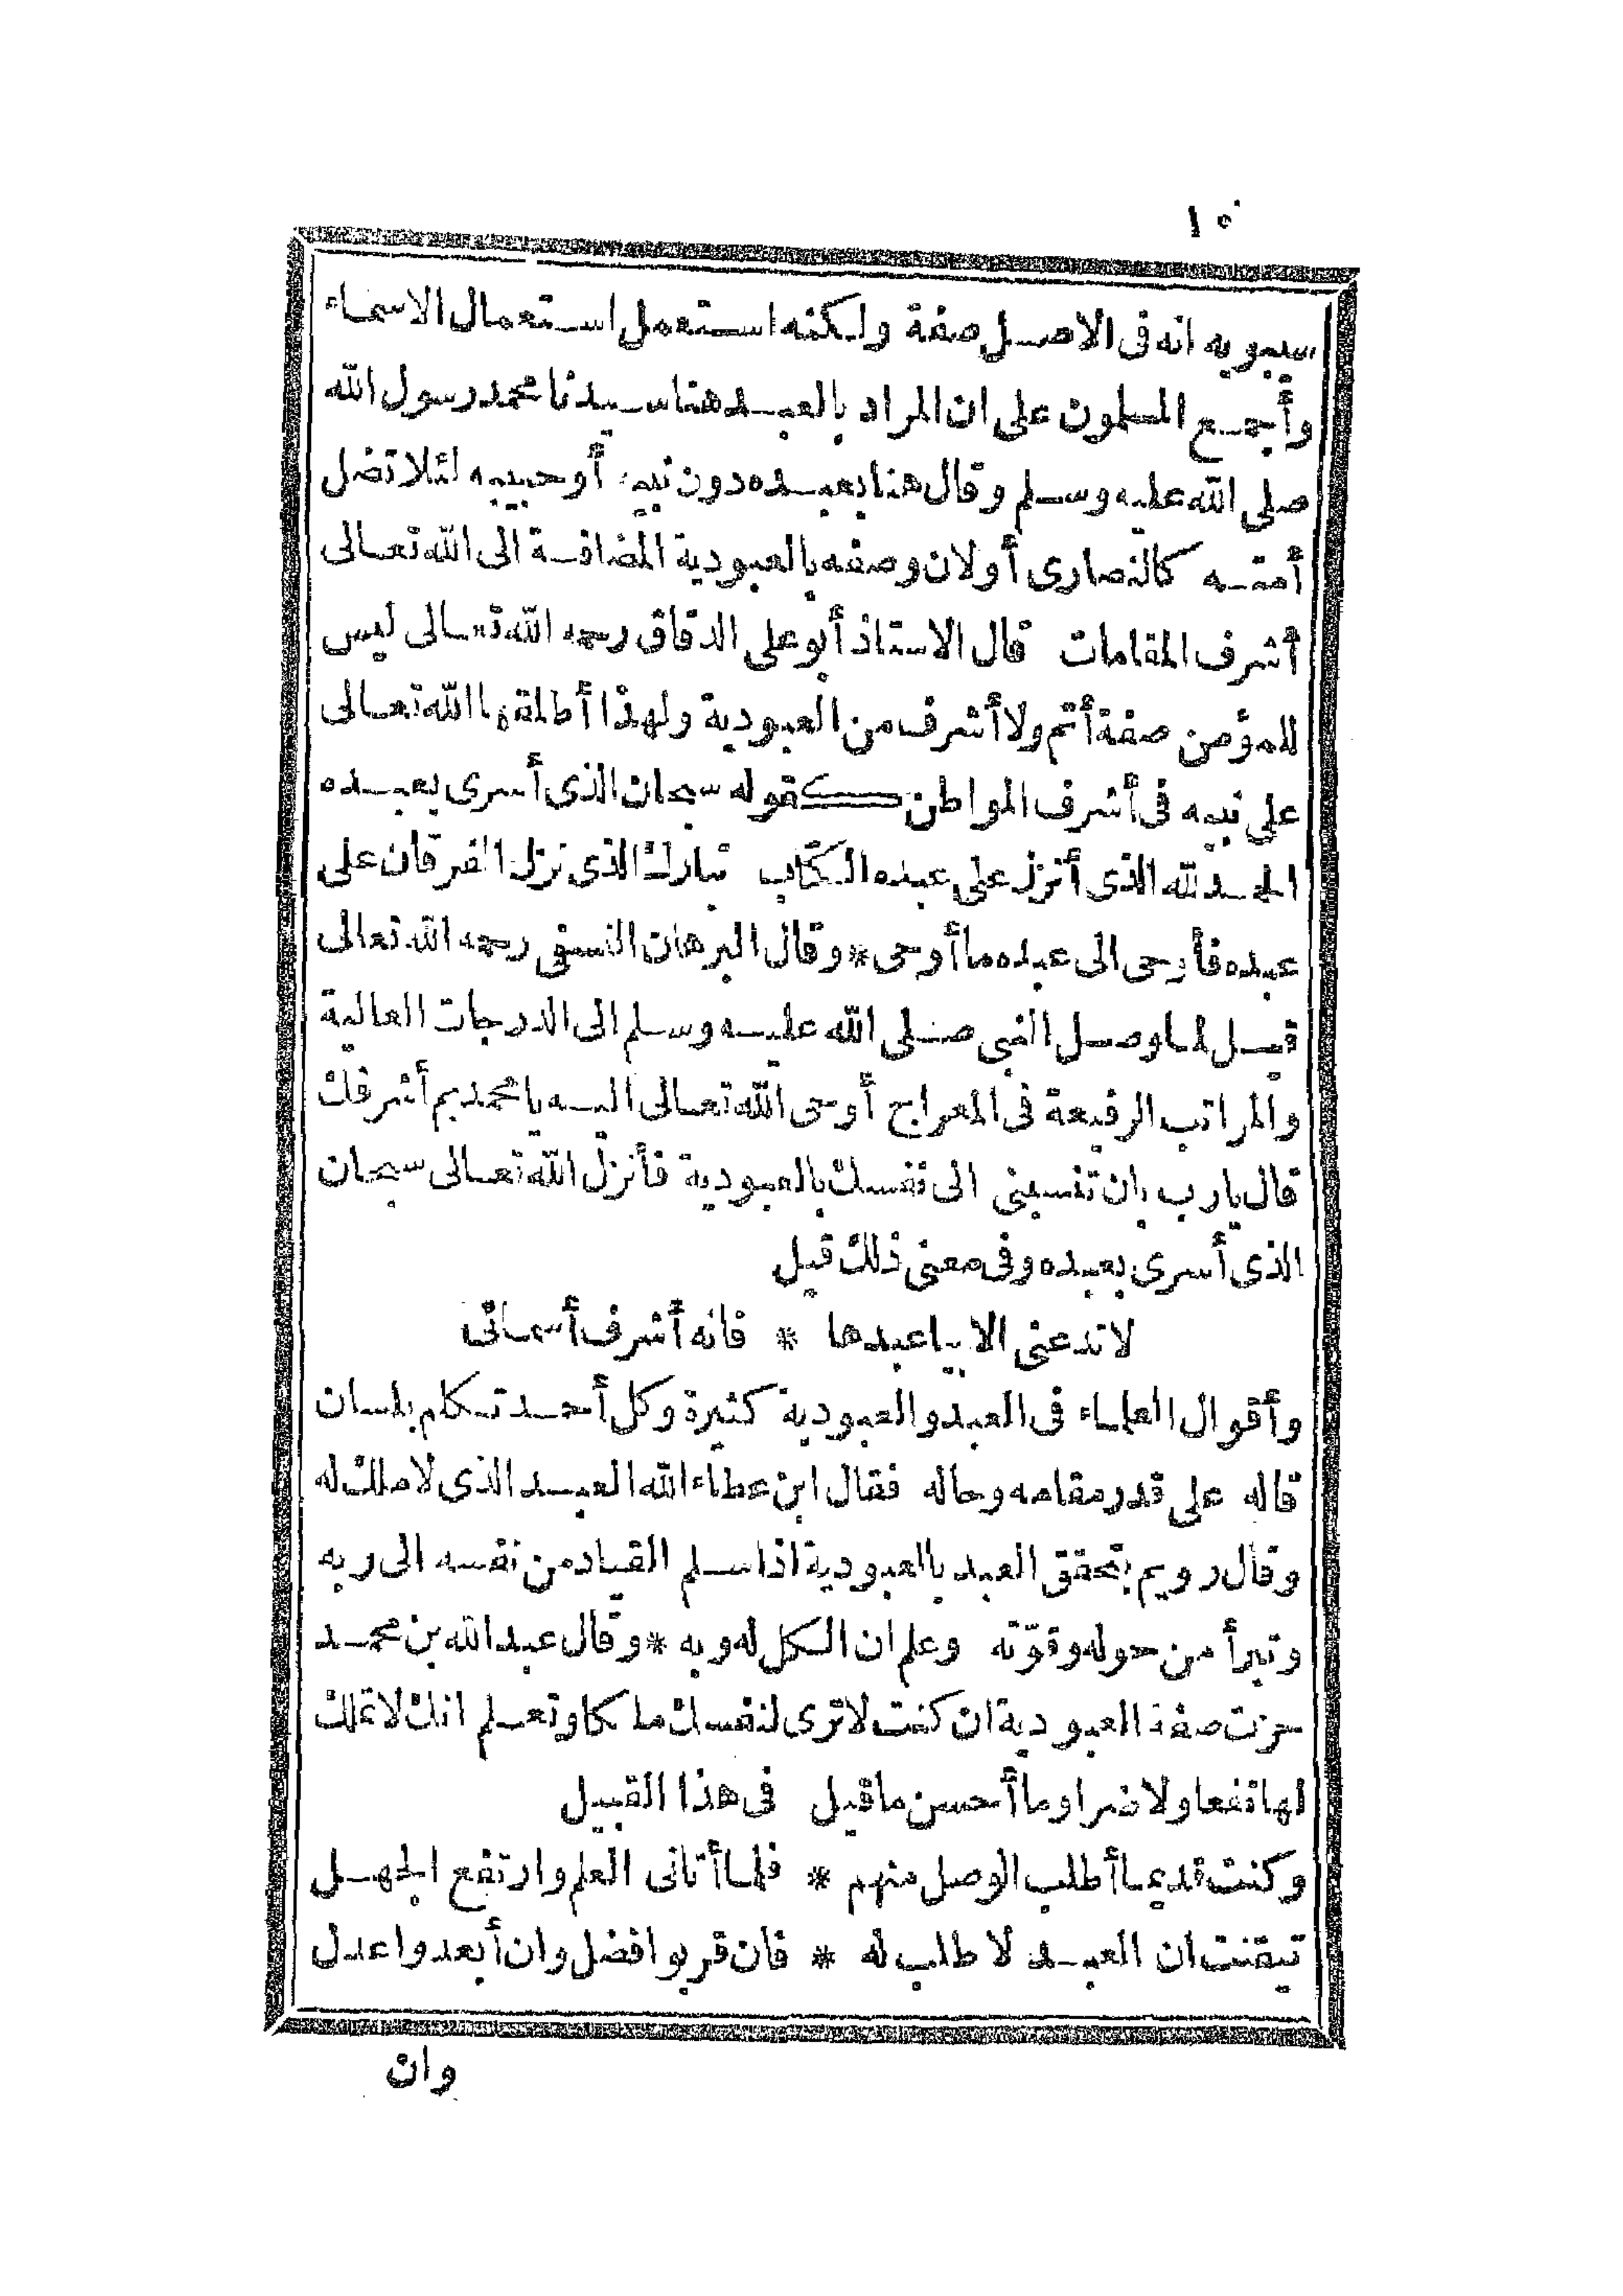 ١٠
سيبويه انه فى الاصل صفة ولكنه استعمل استعمال الاسماء
وأجمع المسلمون على ان المراد بالعبد هنا سيدنا محمد رسول الله
صلى الله عليه وسلم وقال هنا بعبده دون نبيه أو حبيبه لئلا تضل
أمته كالنصارى أو لان وصفه بالعبودية المضافة الى الله تعالى
أشرف المقامات قال الاستاذ أبو على الدقاق رحمه الله تعالى ليس
للمؤمن صفة أتم ولا أشرف من العبودية ولهذا أطلقها الله تعالى
على نبيه فى أشرف المواطن كقوله سبحان الذى أسرى بعبده
الحمد لله الذى أنزل على عبده الكتاب تبارك الذى نزل الفرقان على
عبده فأوحى الى عبده ما أوحى * وقال البرهان النسفى رحمه الله تعالى
قيل لما وصل النبى صلى الله عليه وسلم الى الدرجات العالية
والمراتب الرفيعة فى المعراج أوحى الله تعالى اليه يا محمد بم أشرفك
قال يارب بان تنسبنى الى نفسك بالعبودية فأنزل الله تعالى سبحان
الذى أسرى بعبده وفى معنى ذلك قيل
لا تدعنى الا بيا عبدها * فانه أشرف أسمائى
وأقوال العلماء فى العبد والعبودية كثيرة وكل أحد تكلم بلسان
قاله على قدر مقامه وحاله فقال ابن عطاء الله العبد الذى لا ملك له
وقال رويم يتحقق العبد بالعبودية اذا سلم القياد من نفسه الى ربه
وتبرأ من حوله وقوّته وعلم ان الكل له وبه * وقال عبد الله بن محمد
حزت صفة العبودية ان كنت لا ترى لنفسك ملكا وتعلم انك لا تملك
لها نفعا ولا ضرا وما أحسن ما قيل فى هذا القبيل
وكنت قديما أطلب الوصل منهم * فلما أتانى العلم وارتفع الجهل
تيقنت ان العبد لا طلب له * فان قربوا فضل وان أبعدوا عدل
وان